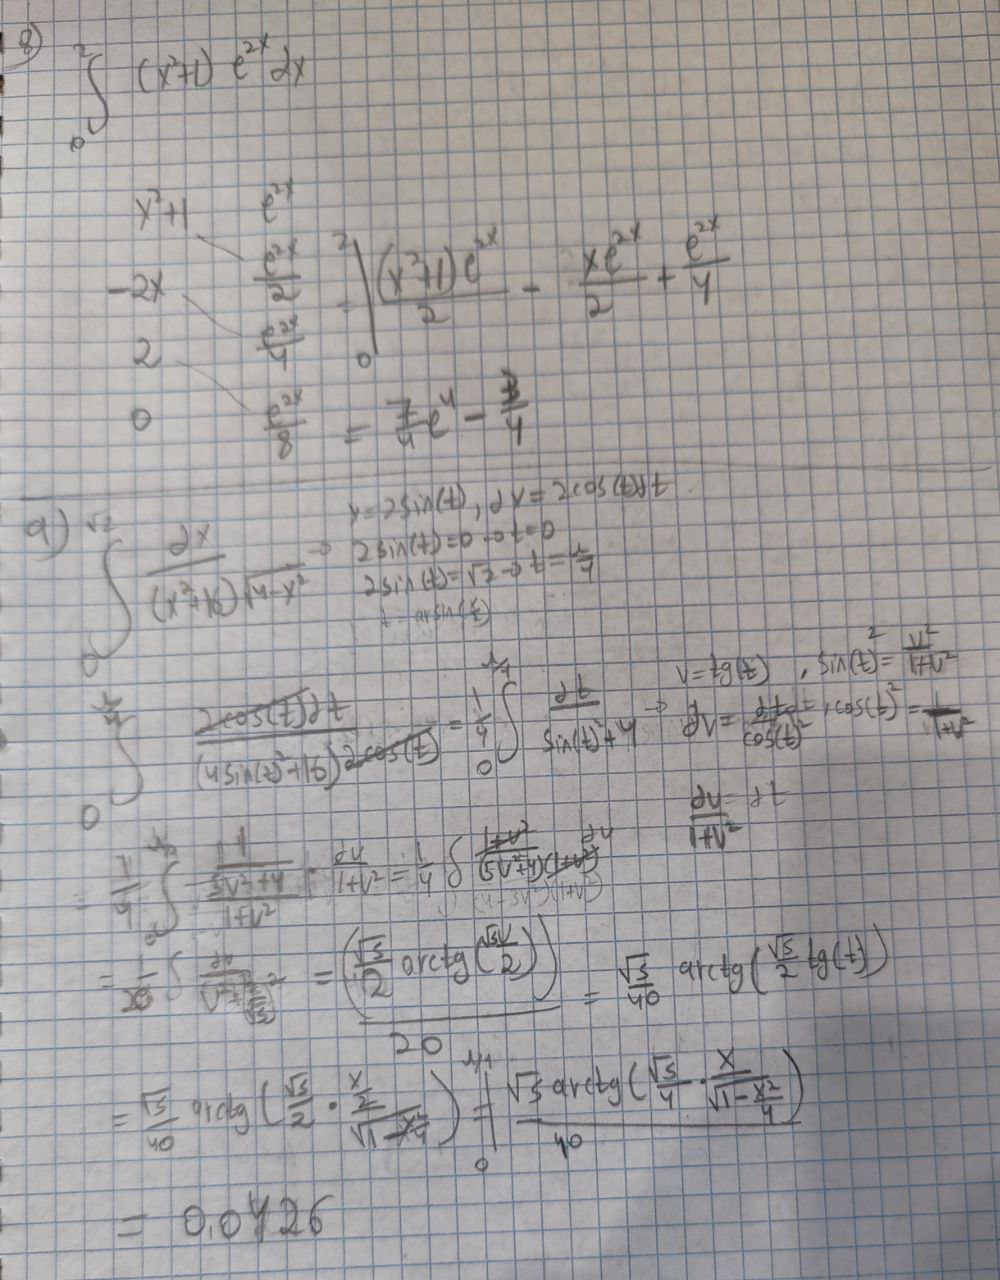 8)
∫₀² (x²+1) e^{2x} dx
x²+1 e^{2x}
-2x e^{2x}/2 = |₀² (x²+1)e^{2x}/2 - xe^{2x}/2 + e^{2x}/4
2 e^{2x}/4
0 e^{2x}/8 = 7/4 e⁴ - 3/4
9) ∫₀^{√2} dx/((x²+16)√(4-x²)) → x=2sin(t), dx=2cos(t)dt
2sin(t)=0 → t=0
2sin(t)=√2 → t=π/4
t=arsin(x/2)
∫₀^{π/4} 2cos(t)dt/((4sin(t)²+16)2cos(t)) = 1/4 ∫₀^{π/4} dt/(sin(t)²+4) → v=tg(t), sin(t)²=v²/(1+v²)
dv=dt/cos(t)², cos(t)²=1/(1+v²)
dv/(1+v²)=dt
= 1/4 ∫ 1/((5v²+4)/(1+v²)) · dv/(1+v²) = 1/4 ∫ (1+v²)dv/((5v²+4)(1+v²))
= 1/20 ∫ = (√5/2 arctg(√5v/2))/20 = √5/40 arctg(√5/2 tg(t))
= √5/40 arctg(√5/2 · (x/2)/√(1-x²/4)) = |₀^{π/4} √5 arctg(√5/4 · x/√(1-x²/4))/40
= 0.0426